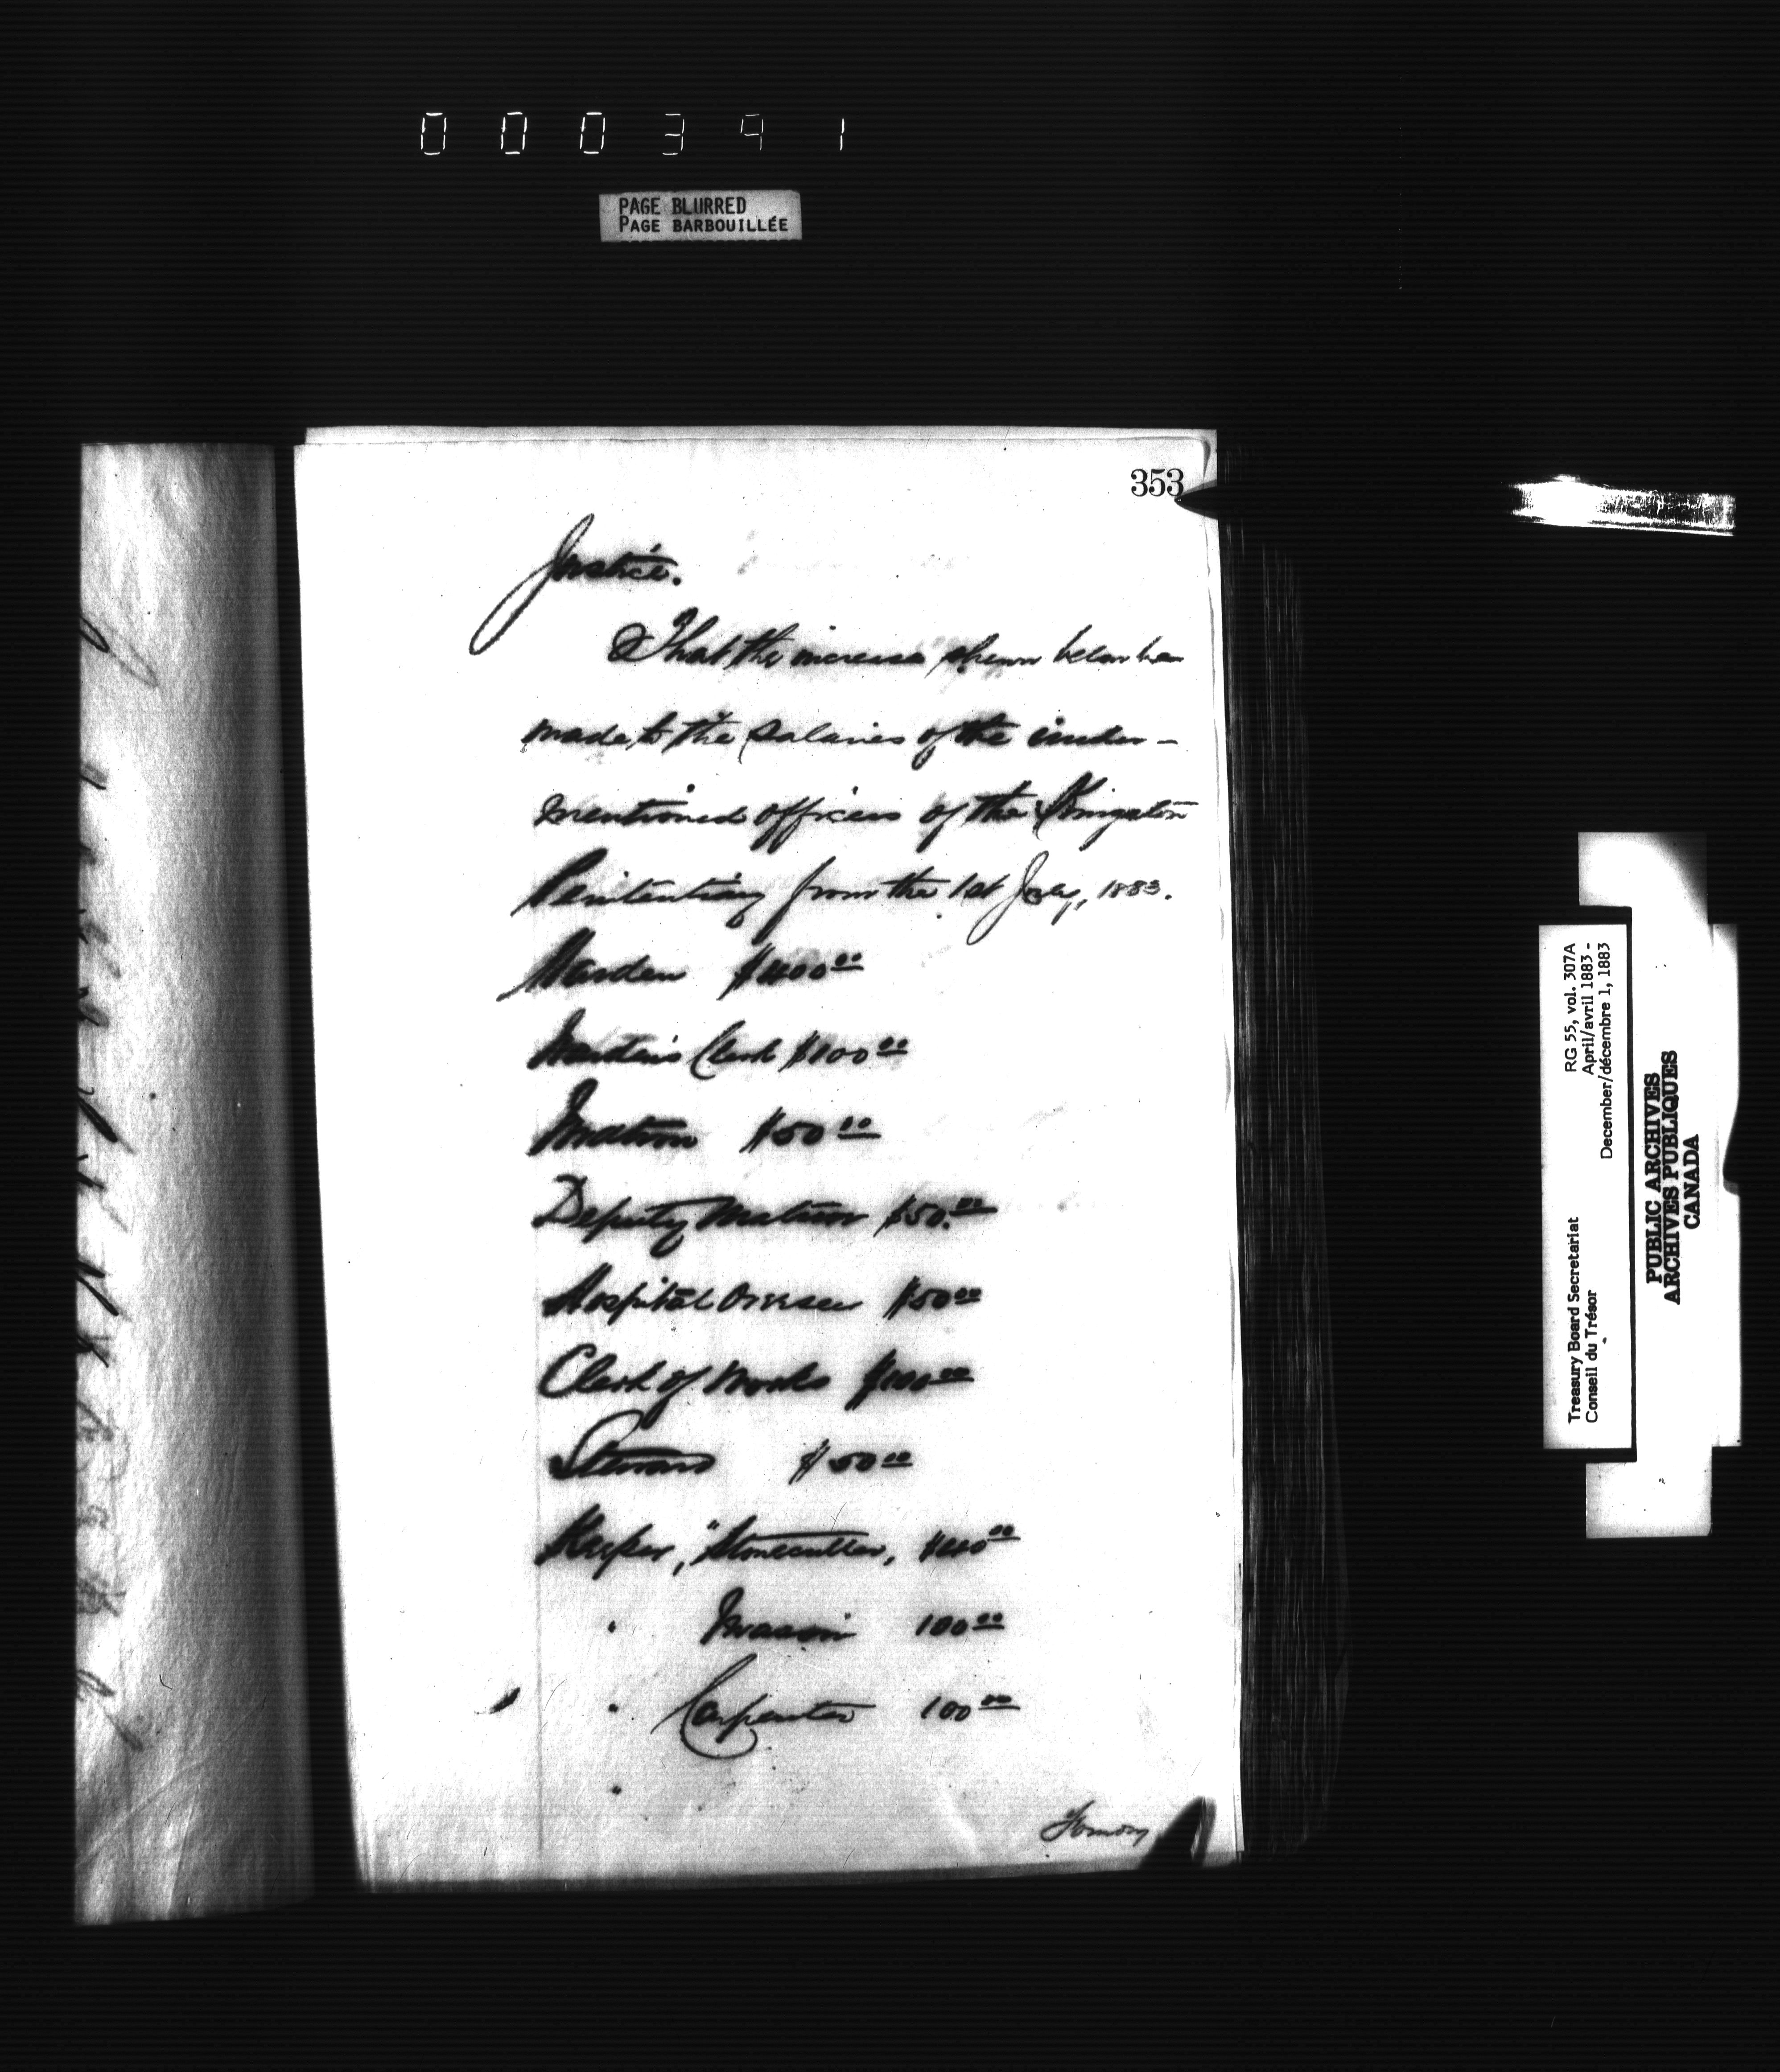 000391
PAGE BLURRED
PAGE BARBOUILLÉE
353
Justice.
That the increase shewn below be
made to the salaries of the under-
mentioned officers of the Kingston
Penitentiary from the 1st July, 1883.
Warden $400 00
Warden's Clerk $100 00
Matron $50 00
Deputy Matron $50.00
Hospital Overseer $50 00
Clerk of Works $100 00
Steward $50 00
Keeper, "Stonecutter, 00
" Mason 100 00
" Carpenter 100 00
"
RG 55, vol. 307A
April/avril 1883 -
December/décembre 1, 1883
Treasury Board Secretariat
Conseil du Trésor
PUBLIC ARCHIVES
ARCHIVES PUBLIQUES
CANADA